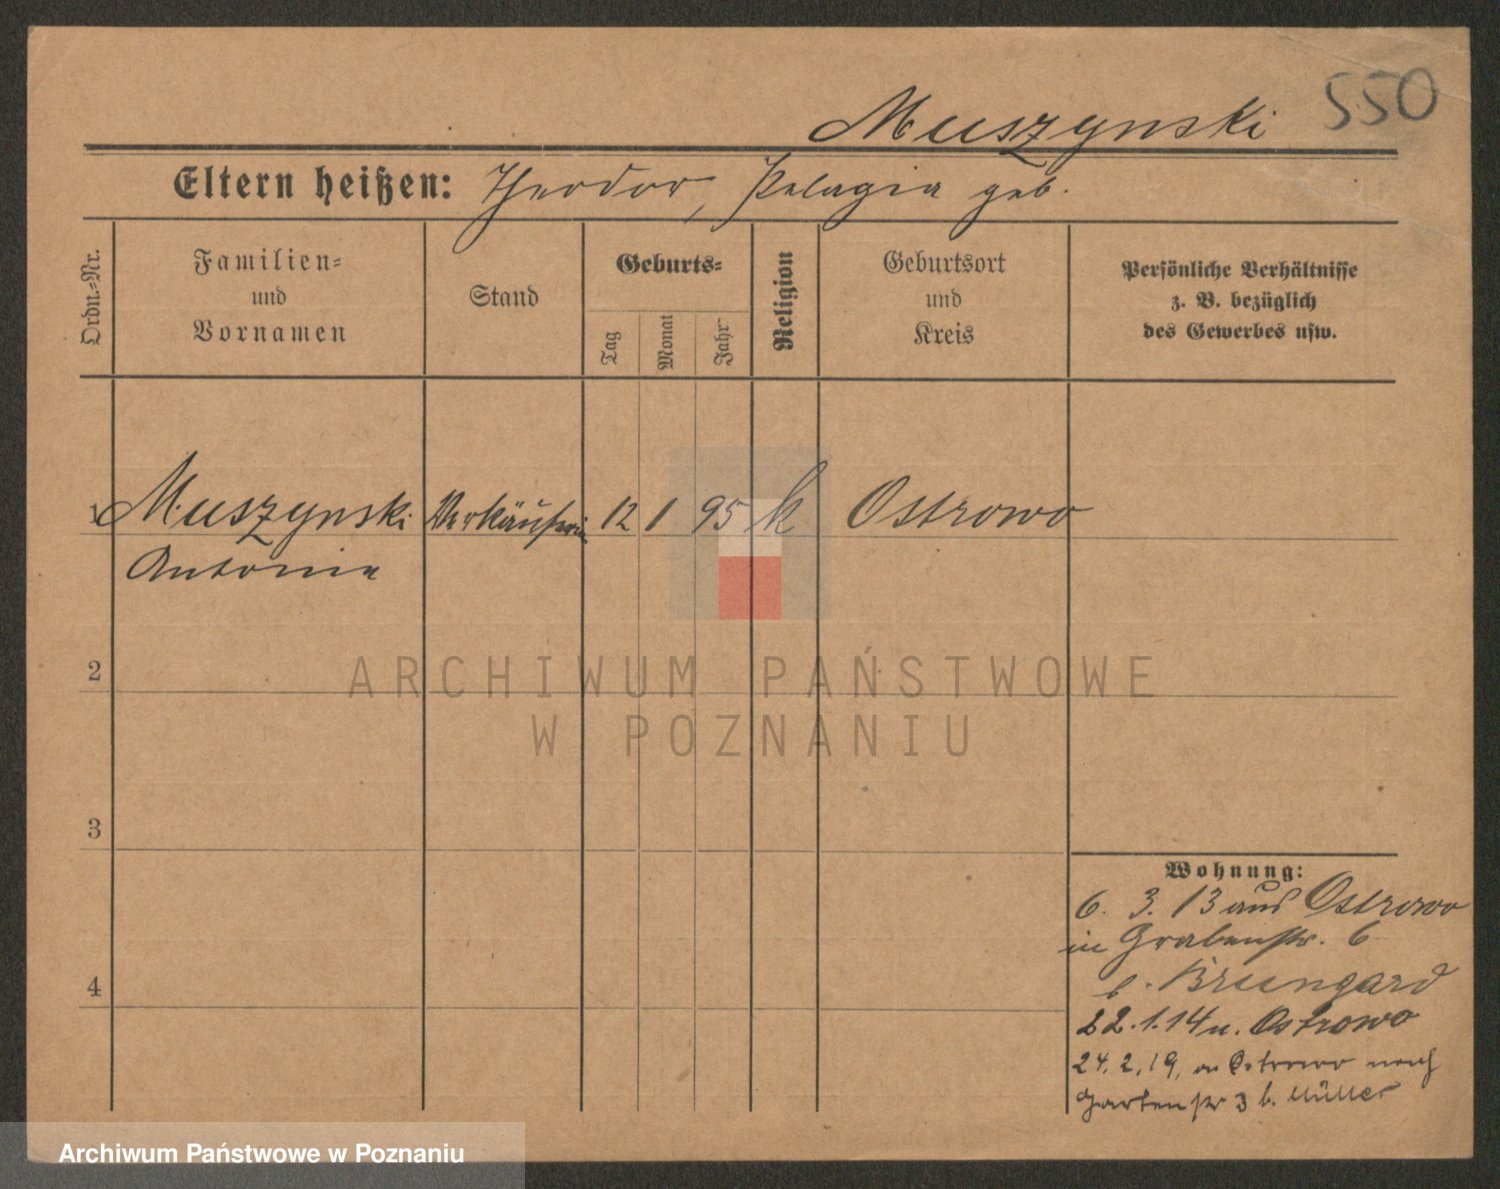 Muszynski 550
Eltern heißen: Theodor, Pelagia geb.
Ordn.-Nr.
Familien-
und
Vornamen
Stand
Geburts-
Tag
Monat
Jahr
Religion
Geburtsort
und
Kreis
Persönliche Verhältnisse
z. B. bezüglich
des Gewerbes usw.
1 Muszynski Verkäuferin 12 1 95 k Ostrowo
Antonie
2
3
4
Wohnung:
6. 3. 13 aus Ostrowo
in Grabenstr. 6
b. Brungard
22.1.14 n. Ostrowo
24.2.19, Ostrowo nach
Gartenstr 3 b. Müller
ARCHIWUM PAŃSTWOWE
W POZNANIU
Archiwum Państwowe w Poznaniu